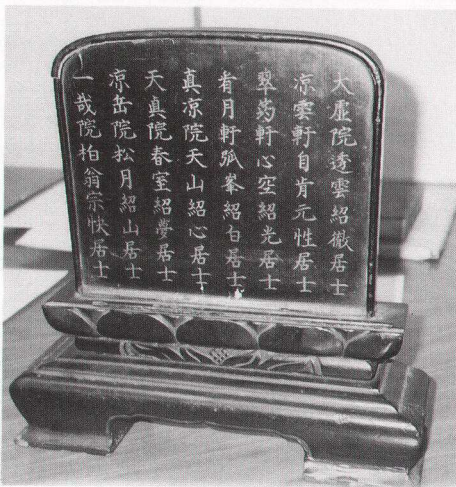 大虚院透雲紹徹居士
凉雲軒自肯元性居士
翠筠軒心空紹光居士
肯月軒孤峯紹白居士
真凉院天山紹心居士
天真院春室紹夢居士
凉岳院松月紹山居士
一哉院柏翁宗快居士